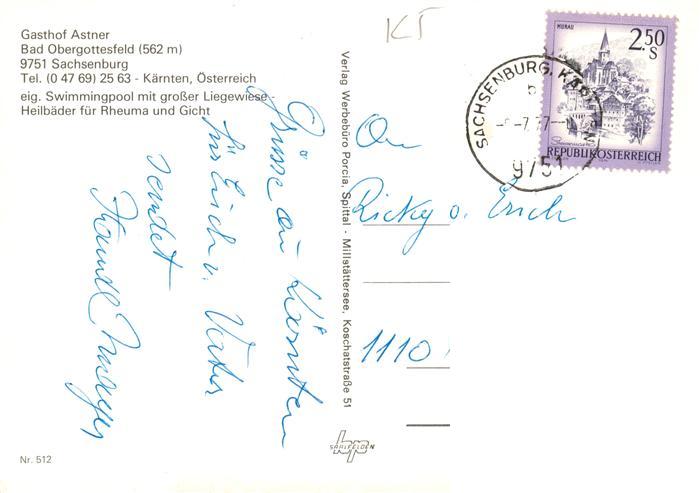 Gasthof Astner
Bad Obergottesfeld (562 m)
9751 Sachsenburg
Tel. (0 47 69) 25 63 - Kärnten, Österreich
eig. Swimmingpool mit großer Liegewiese -
Heilbäder für Rheuma und Gicht
Grüsse aus Kärnten
für Erich u. Vater
sendet
Nr. 512
Verlag Werbebüro Porcia, Spittal - Millstättersee, Koschatstraße 51
SAALFELDEN
KT
MURAU
2.50
S
REPUBLIK ÖSTERREICH
SACHSENBURG, KÄRNTEN
9751
An
Ricky u. Erich
1110